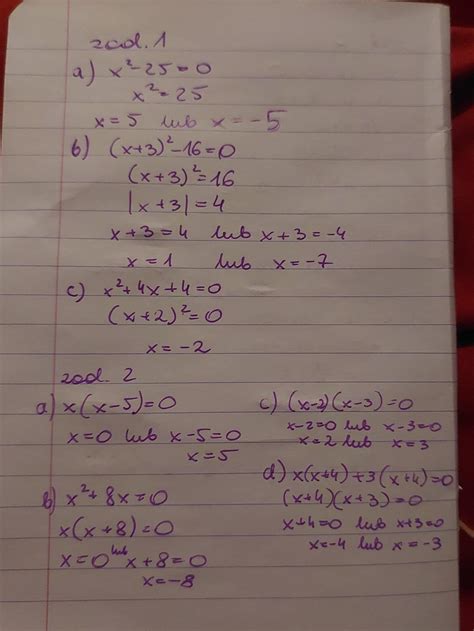 zad. 1
a) x²-25=0
x²=25
x=5 lub x=-5
b) (x+3)²-16=0
(x+3)²=16
|x+3|=4
x+3=4 lub x+3=-4
x=1 lub x=-7
c) x²+4x+4=0
(x+2)²=0
x=-2
zad. 2
a) x(x-5)=0
x=0 lub x-5=0
x=5
b) x²+8x=0
x(x+8)=0
x=0 lub x+8=0
x=-8
c) (x-2)(x-3)=0
x-2=0 lub x-3=0
x=2 lub x=3
d) x(x+4)+3(x+4)=0
(x+4)(x+3)=0
x+4=0 lub x+3=0
x=-4 lub x=-3